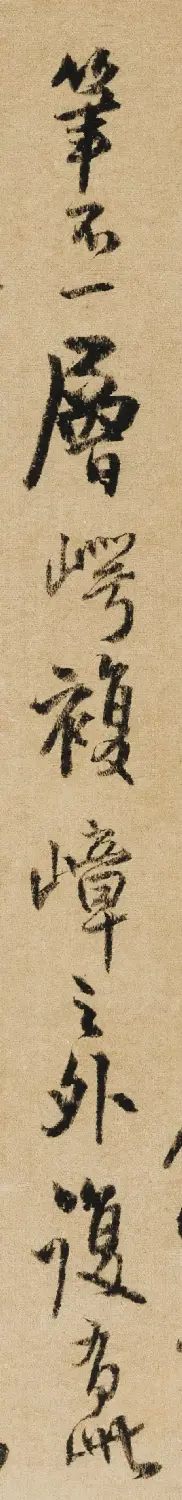 筆不一層崿複嶂之外復有此